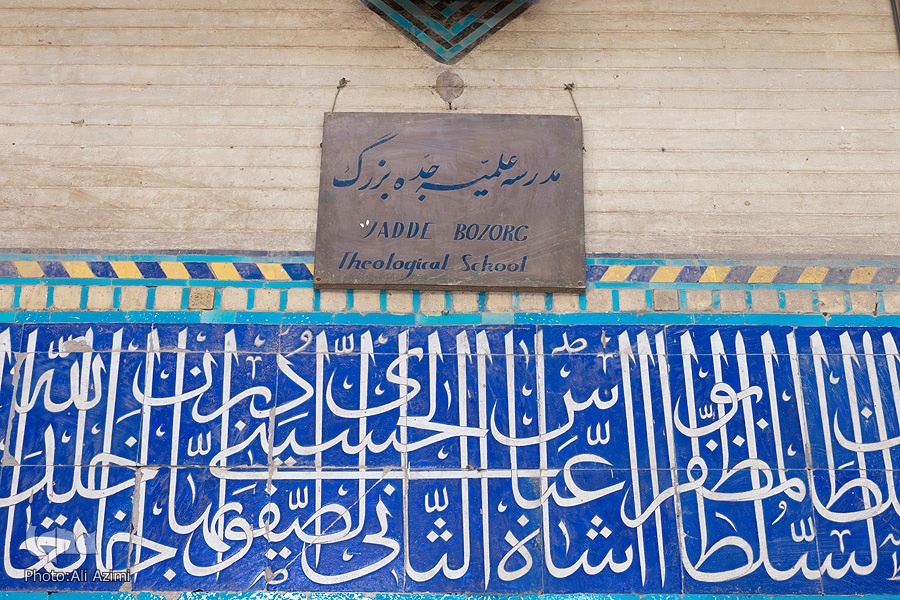 مدرسه علمیّه جدّه بزرگ
JADDE BOZORG
Theological School
السلطان المظفر شاه عباس الثانی الصفوی الحسینی خلد الله
Photo:Ali Azimi